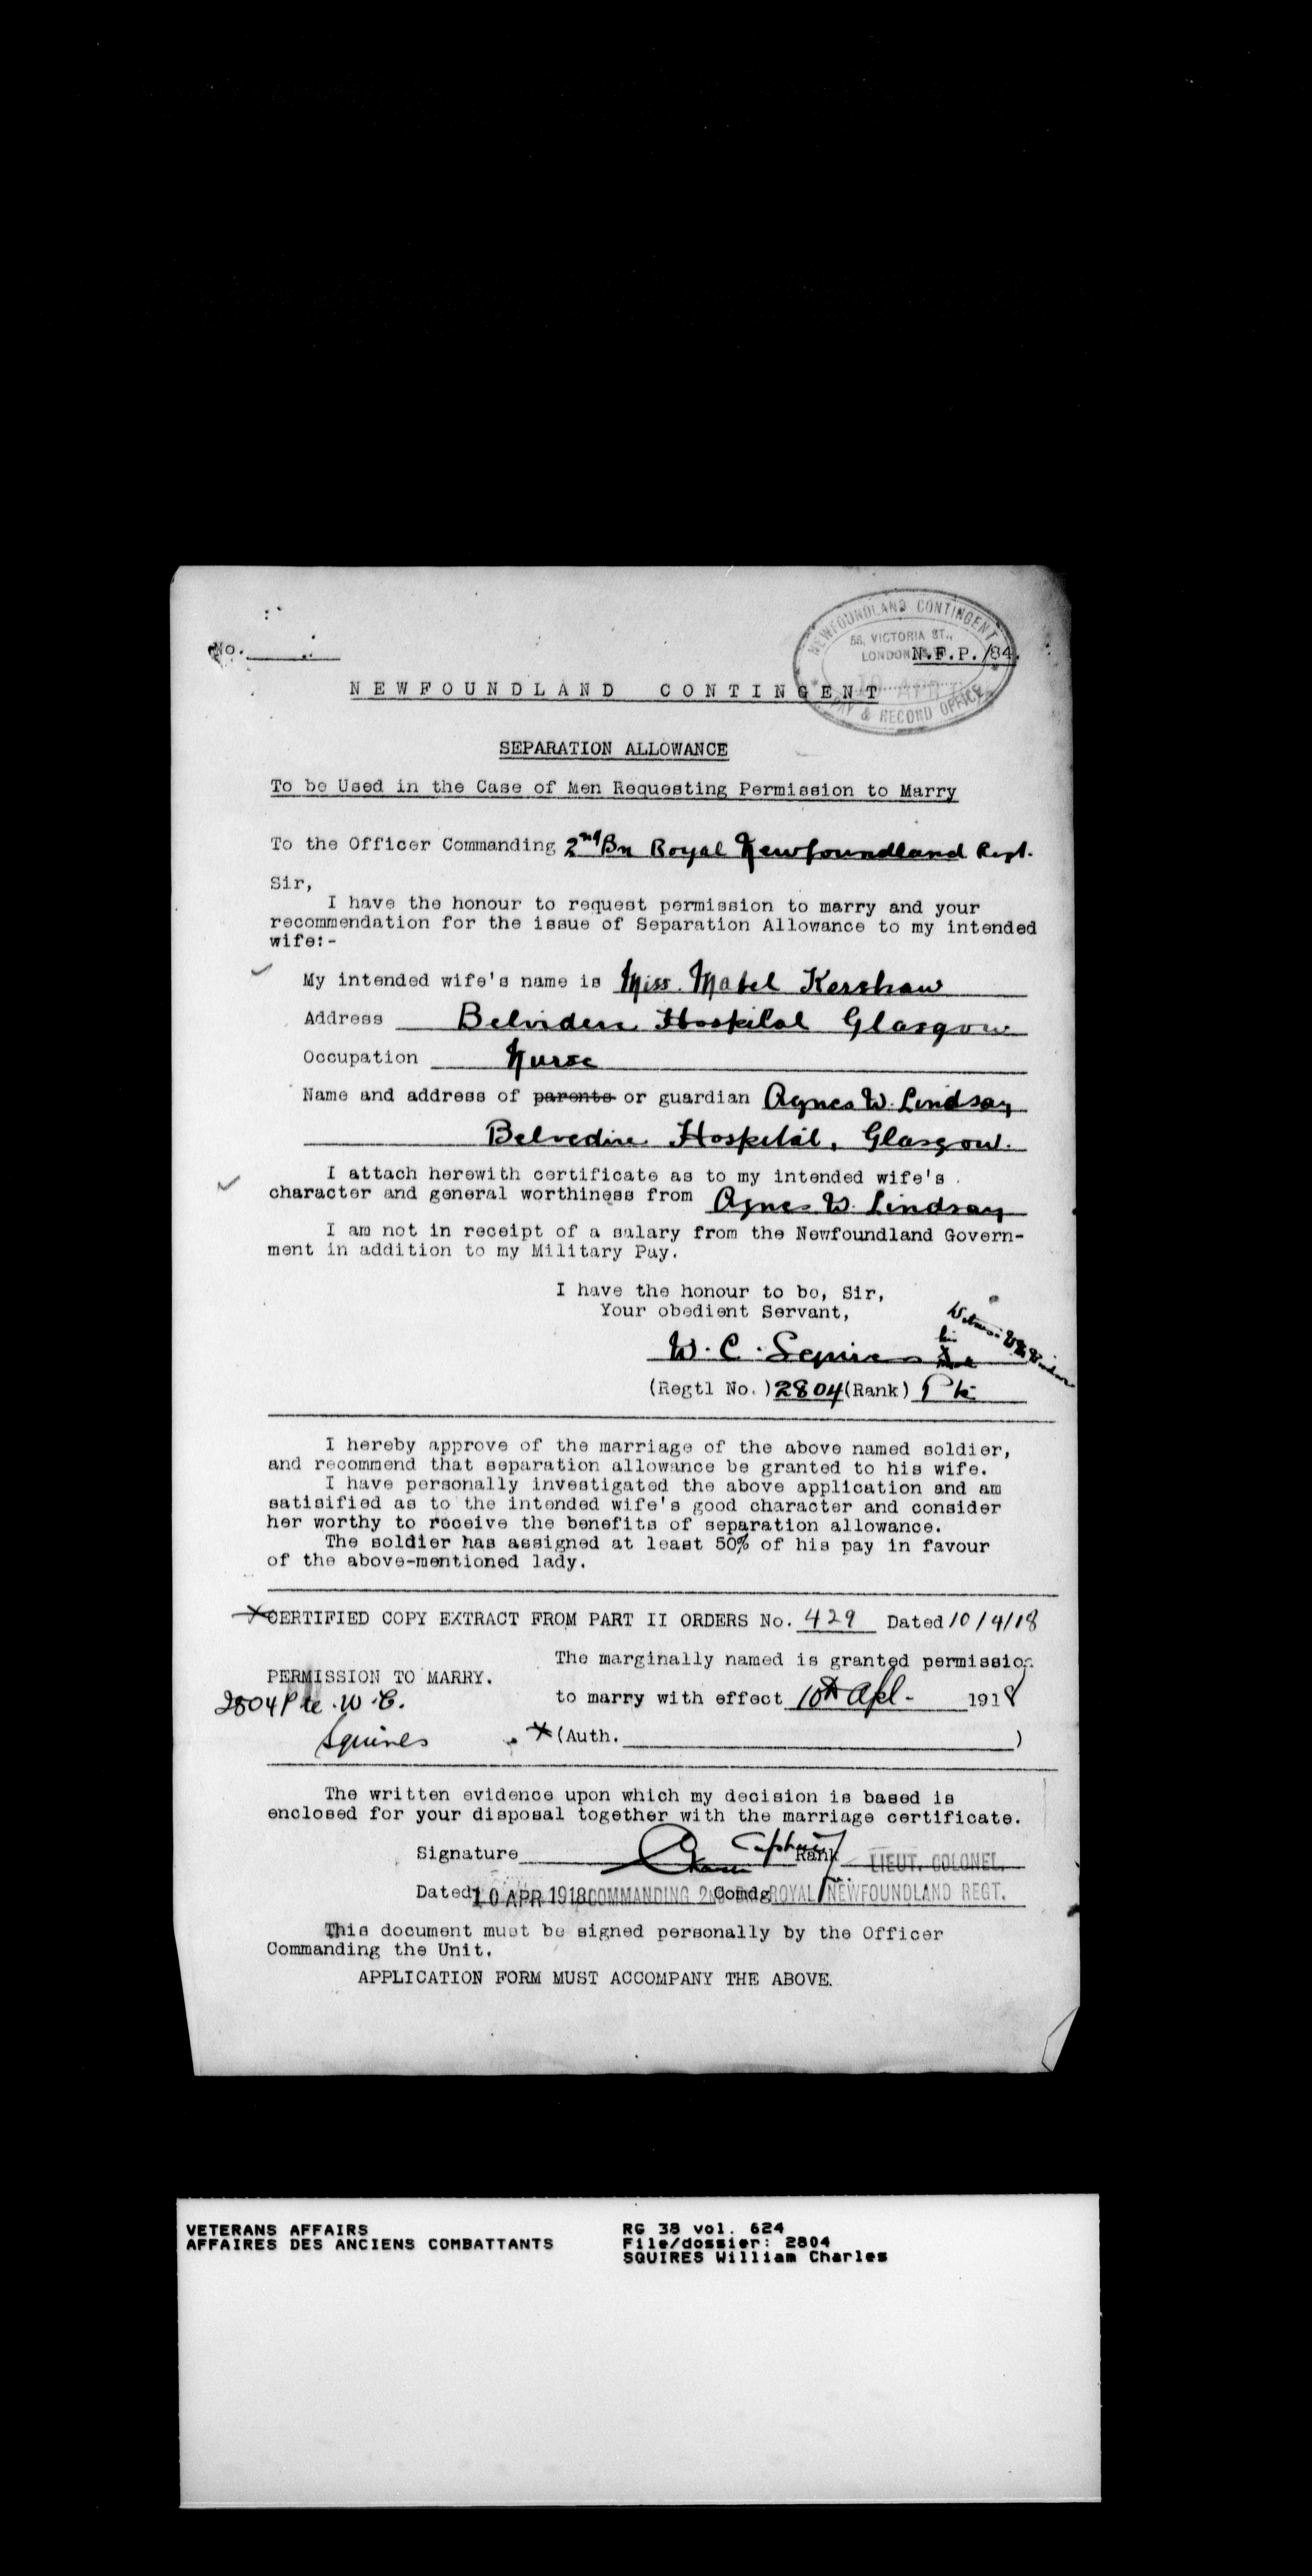 NEWFOUNDLAND CONTINGENT
58, VICTORIA ST.,
LONDON
PAY & RECORD OFFICE
No.
N.F.P./84.
NEWFOUNDLAND CONTINGENT
SEPARATION ALLOWANCE
To be Used in the Case of Men Requesting Permission to Marry
To the Officer Commanding 2nd Bn Royal Newfoundland Regt.
Sir,
I have the honour to request permission to marry and your
recommendation for the issue of Separation Allowance to my intended
wife:-
My intended wife's name is Miss. Mabel Kershaw
Address Belvidere Hospital Glasgow
Occupation Nurse
Name and address of parents or guardian Agnes W. Lindsay
Belvedire Hospital, Glasgow.
I attach herewith certificate as to my intended wife's
character and general worthiness from Agnes W. Lindsay
I am not in receipt of a salary from the Newfoundland Govern-
ment in addition to my Military Pay.
I have the honour to be, Sir,
Your obedient Servant,
W. C. Squires his X mark
Witness
(Regtl No.) 2804 (Rank) Pte
I hereby approve of the marriage of the above named soldier,
and recommend that separation allowance be granted to his wife.
I have personally investigated the above application and am
satisified as to the intended wife's good character and consider
her worthy to receive the benefits of separation allowance.
The soldier has assigned at least 50% of his pay in favour
of the above-mentioned lady.
CERTIFIED COPY EXTRACT FROM PART II ORDERS No. 429 Dated 10/4/18
The marginally named is granted permission
PERMISSION TO MARRY.
2804 Pte. W. C.
to marry with effect 10th Apl. 1918
Squires
(Auth. )
The written evidence upon which my decision is based is
enclosed for your disposal together with the marriage certificate.
Signature Rank LIEUT. COLONEL.
Dated 10 APR 1918 COMMANDING 2ND Comdg ROYAL NEWFOUNDLAND REGT.
This document must be signed personally by the Officer
Commanding the Unit.
APPLICATION FORM MUST ACCOMPANY THE ABOVE.
VETERANS AFFAIRS
AFFAIRES DES ANCIENS COMBATTANTS
RG 38 vol. 624
File/dossier: 2804
SQUIRES William Charles